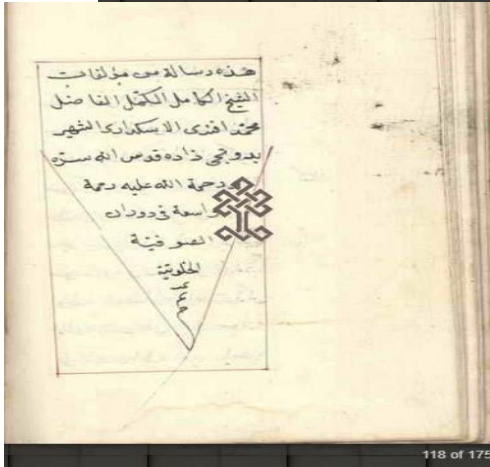 هذه رسالة من مؤلفات
الشيخ الكامل المكمل الفاضل
محمد افندى الاسكدارى الشهير
ذاده قدس الله سره
ورحمة الله عليه رحمة
واسعة فى دوران
الصوفية
الخلوتية
118 of 175